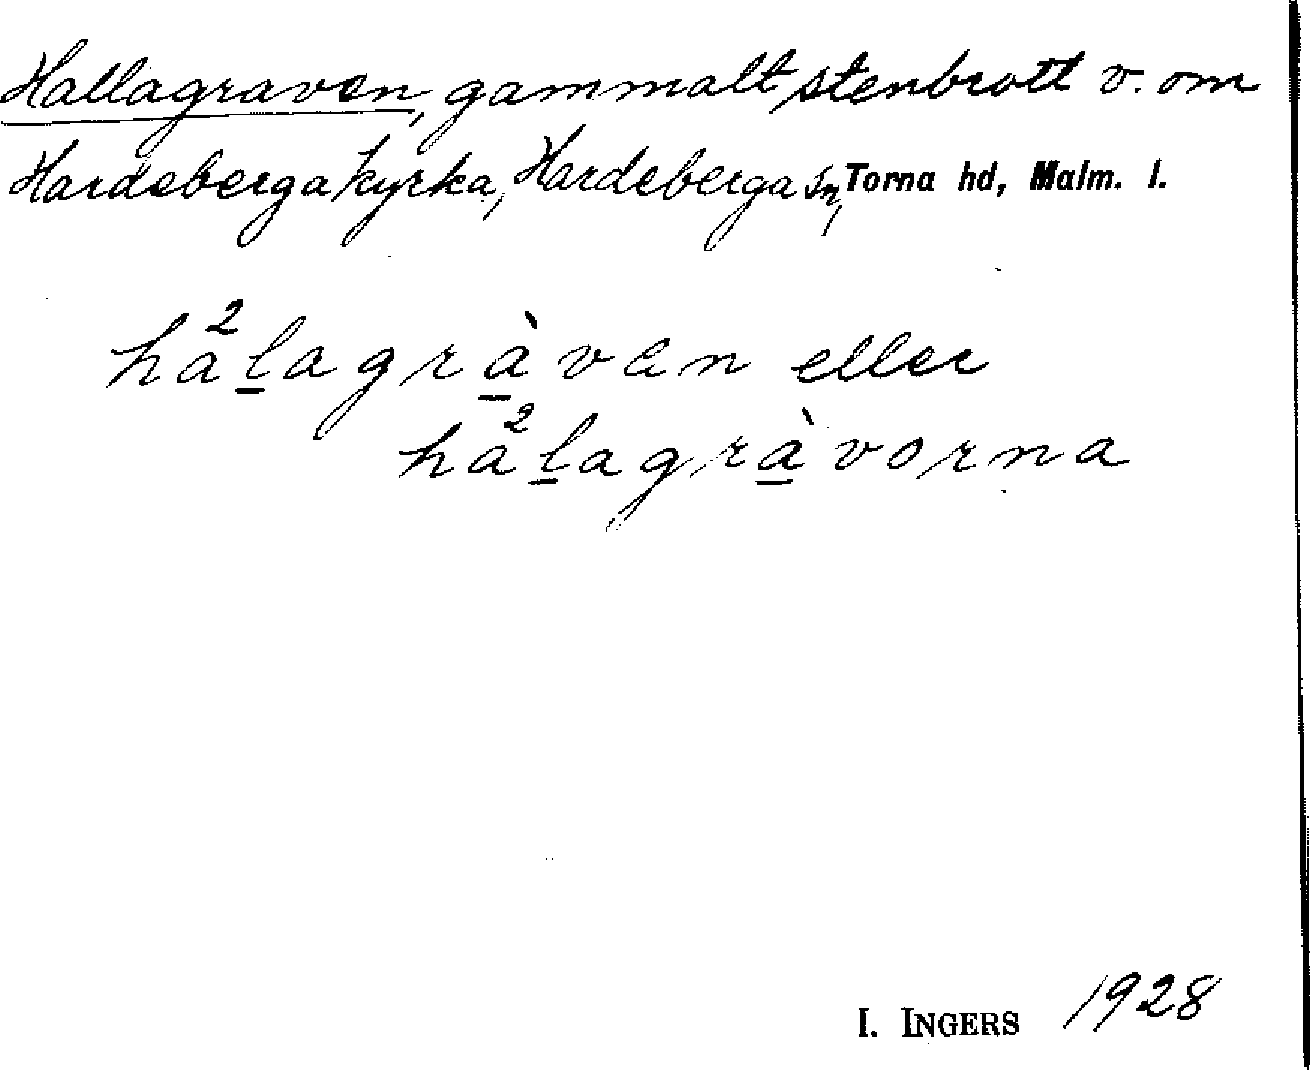 Hallagraven, gammalt stenbrott v. om
Hardeberga kyrka, Hardeberga sn, Torna hd, Malm. l.
ha²l̲agrà̲ven eller
ha²l̲agrà̲vorna
I. INGERS 1928